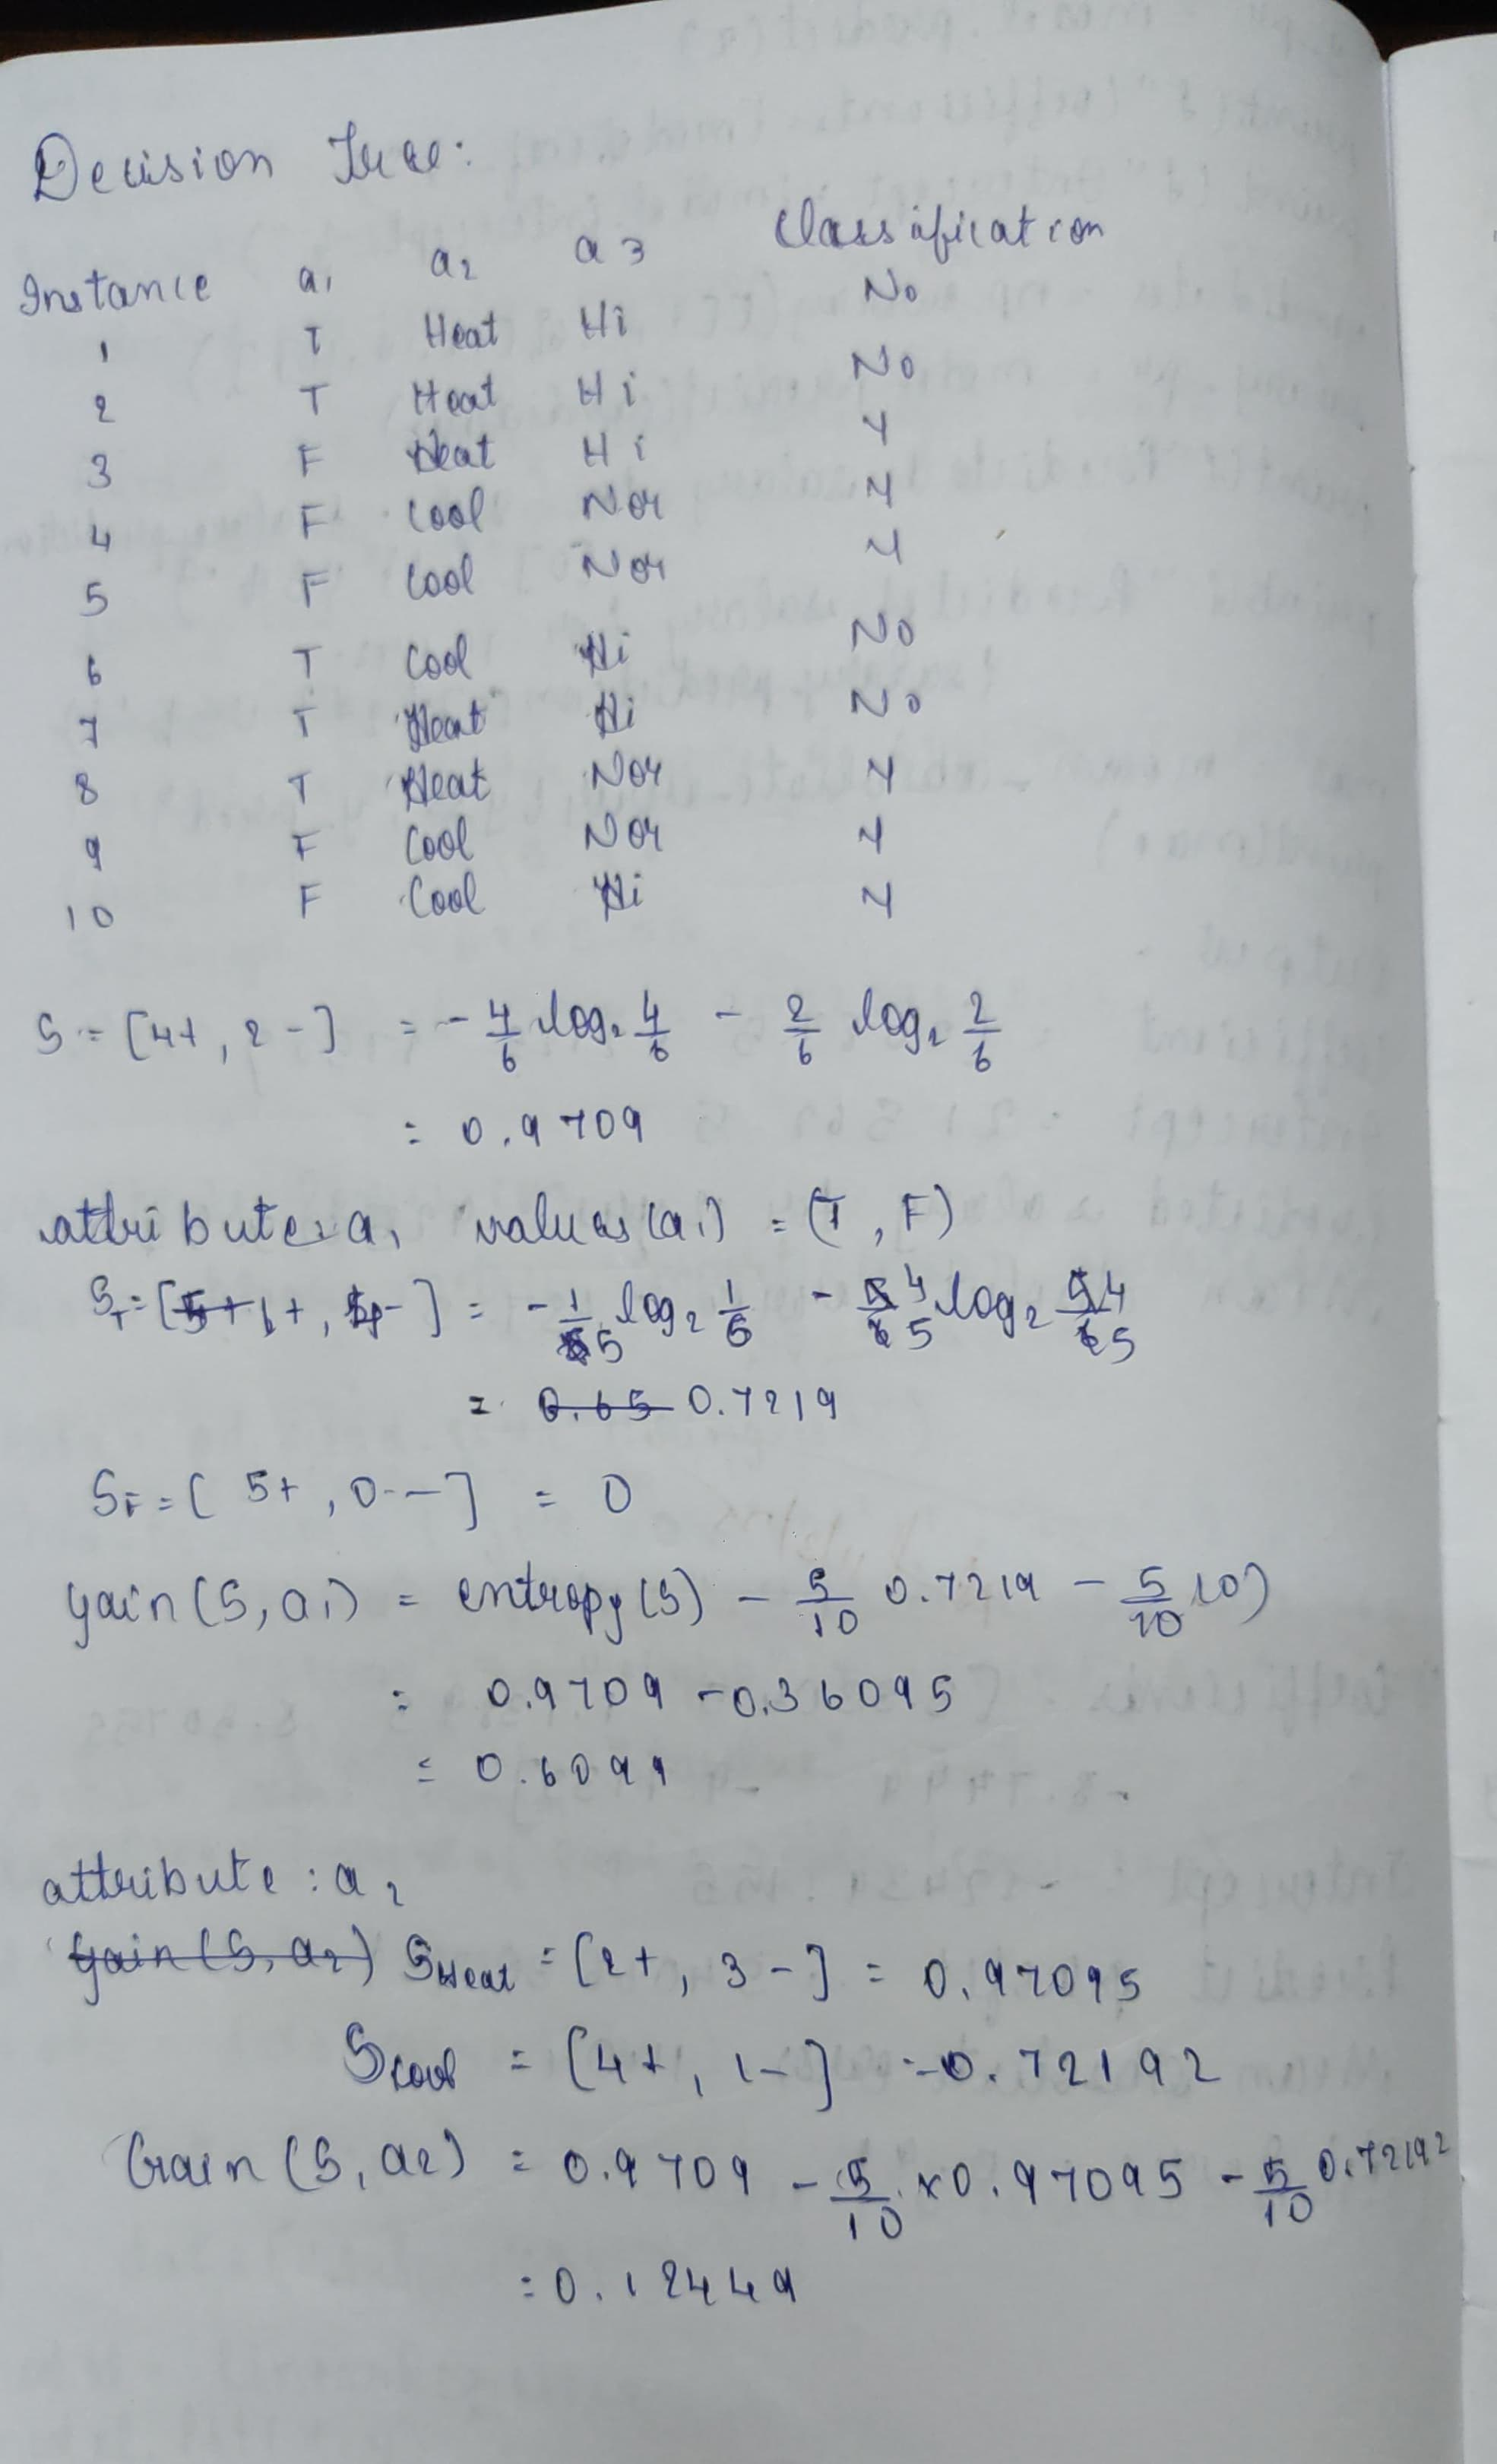 Decision Tree:
Instance a1 a2 a3 Classification
1 T Heat Hi No
2 T Heat Hi No
3 F Heat Hi Y
4 F Cool Nor Y
5 F Cool Nor Y
6 T Cool Hi No
7 T Heat Hi No
8 T Heat Nor Y
9 F Cool Nor Y
10 F Cool Hi Y
S = [4+, 2-] = - 4/6 log2 4/6 - 2/6 log2 2/6
= 0.9709
attribute: a1 values(a1) = (T, F)
ST = [1+, 4-] = - 1/5 log2 1/5 - 4/5 log2 4/5
= 0.65 0.7219
SF = [5+, 0-] = 0
gain(S, a1) = entropy(S) - 5/10 0.7219 - 5/10 (0)
= 0.9709 - 0.36095
= 0.6099
attribute: a2
gain(S, a2) SHeat = [2+, 3-] = 0.97095
SCool = [4+, 1-] = 0.72192
Gain(S, a2) = 0.9709 - 5/10 x 0.97095 - 5/10 0.72192
= 0.12449